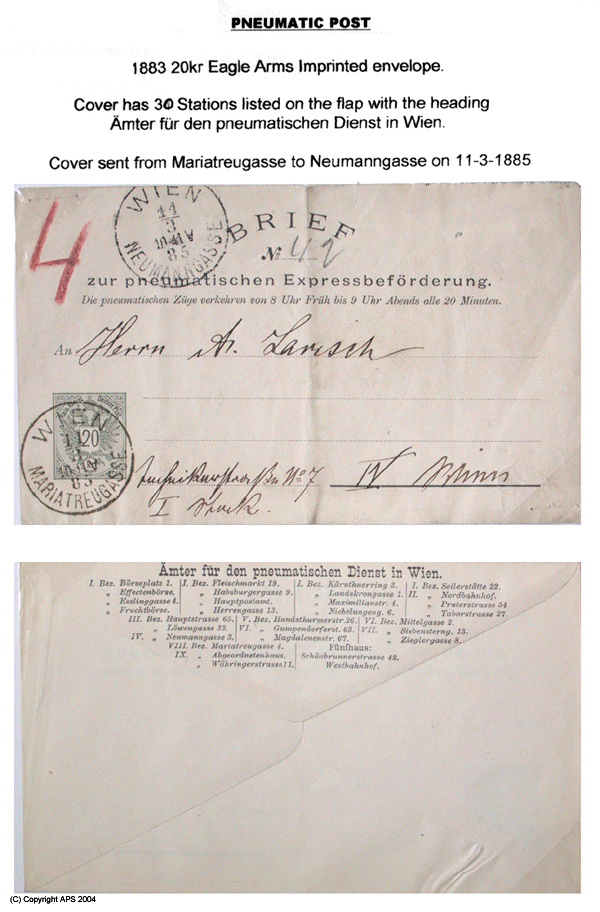 PNEUMATIC POST
1883 20kr Eagle Arms Imprinted envelope.
Cover has 30 Stations listed on the flap with the heading
Ämter für den pneumatischen Dienst in Wien.
Cover sent from Mariatreugasse to Neumanngasse on 11-3-1885
4
WIEN
11
3
85
NEUMANNGASSE
BRIEF
No 42
zur pneumatischen Expressbeförderung.
Die pneumatischen Züge verkehren von 8 Uhr Früh bis 9 Uhr Abends alle 20 Minuten.
An Herrn A. Larisch
20
WIEN
11
3
85
MARIATREUGASSE
Technikerstraße No 7 IV Wien
I Stock.
Ämter für den pneumatischen Dienst in Wien.
I. Bez. Börseplatz 1. I. Bez. Fleischmarkt 19. I. Bez. Kärnthnerring 3. I. Bez. Seilerstätte 22.
„ Effectenbörse. „ Habsburgergasse 9. „ Landskrongasse 1. II. „ Nordbahnhof.
„ Esslinggasse 4. „ Hauptpostamt. „ Maximilianstr. 4. „ Praterstrasse 54
„ Fruchtbörse. „ Herrengasse 13. „ Nibelungeng. 6. „ Taborstrasse 27.
III. Bez. Hauptstrasse 65. V. Bez. Hundsthurmerstr. 26. VI. Bez. Mittelgasse 2.
„ Löwengasse 32. VI. „ Gumpendorferst. 63. VII. „ Siebensterng. 13.
IV. „ Neumanngasse 3. „ Magdalenenstr. 67. „ Zieglergasse 8.
VIII. Bez. Mariatreugasse 4. Fünfhaus:
IX. „ Abgeordnetenhaus. Schönbrunnerstrasse 42.
„ Währingerstrasse 11. Westbahnhof.
(C) Copyright APS 2004